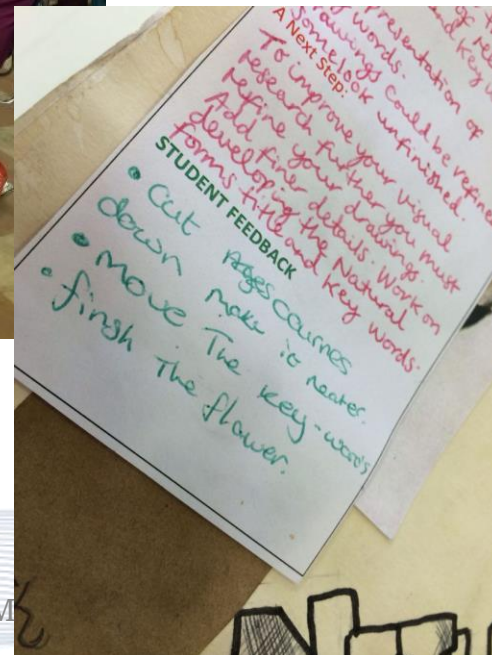 of
presentation of
and key w
drawings could be refine
key words.
Some look unfinished.
A Next Step:
To improve your visual
research further you must
refine your drawings.
Add finer details. Work on
developing the Natural
Forms title and key words.
STUDENT FEEDBACK
• Cut Pages
down make it neater.
• Move The key-words
• finsh The flower.